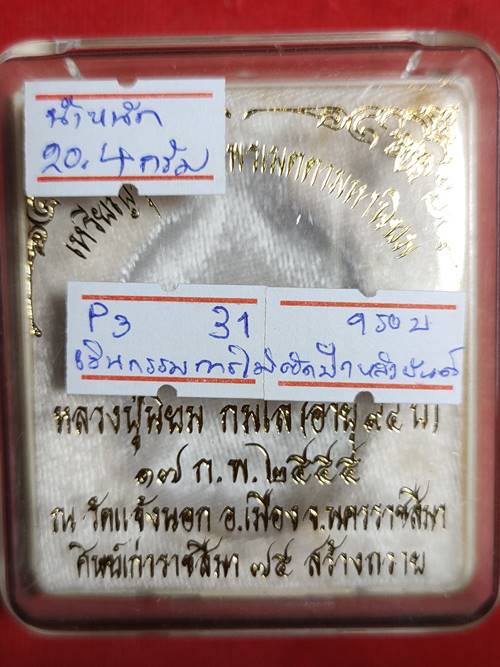 น้ำหนัก
20.4 กรัม
เหรียญ
พรเมตตามหานิยม
P3 31 ๑ รอบ
เงินกรรมการไม่ตัดปีกหลังยันต์
หลวงปู่นิยม กมโล (อายุ ๙๔ ปี)
๑๗ ก.พ. ๒๕๕๕
ณ วัดแจ้งนอก อ.เมือง จ.นครราชสีมา
ศิษย์เก่าราชสีมา ๗๕ สร้างถวาย